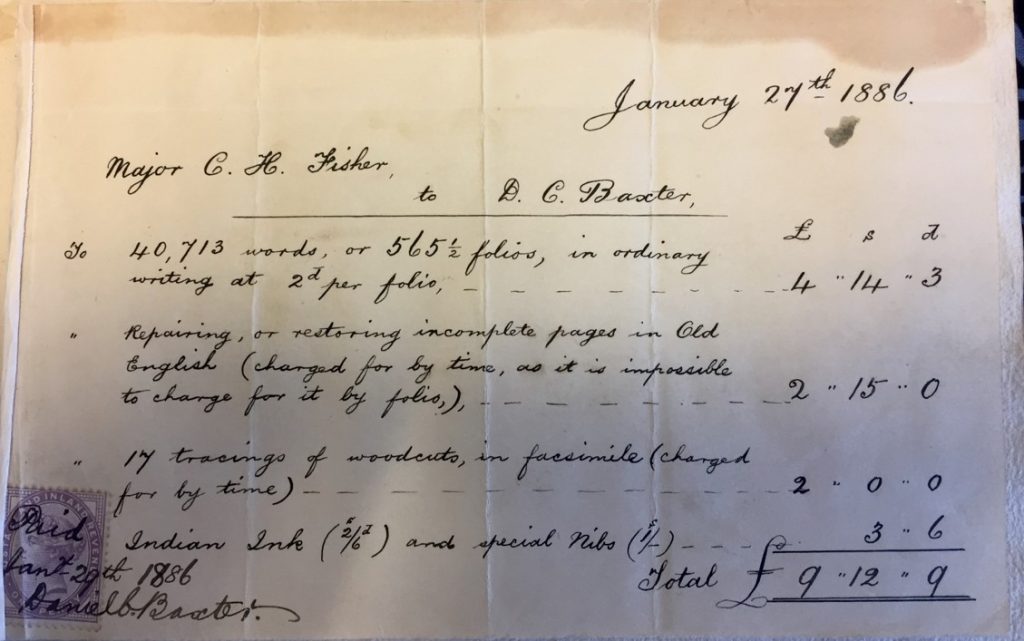 January 27th 1886.
Major C. H. Fisher,
to D. C. Baxter,
£ s d
To 40,713 words, or 565½ folios, in ordinary
writing at 2d per folio, 4 " 14 " 3
" Repairing, or restoring incomplete pages in Old
English (charged for by time, as it is impossible
to charge for it by folio,), 2 " 15 " 0
" 17 tracings of woodcuts, in facsimile (charged
for by time) 2 " 0 " 0
Indian Ink (2s/6d) and special Nibs (1s/-) 3 " 6
Total £ 9 " 12 " 9
AND INLAND REVENUE
Paid
Jany 29th 1886
Daniel C. Baxter.